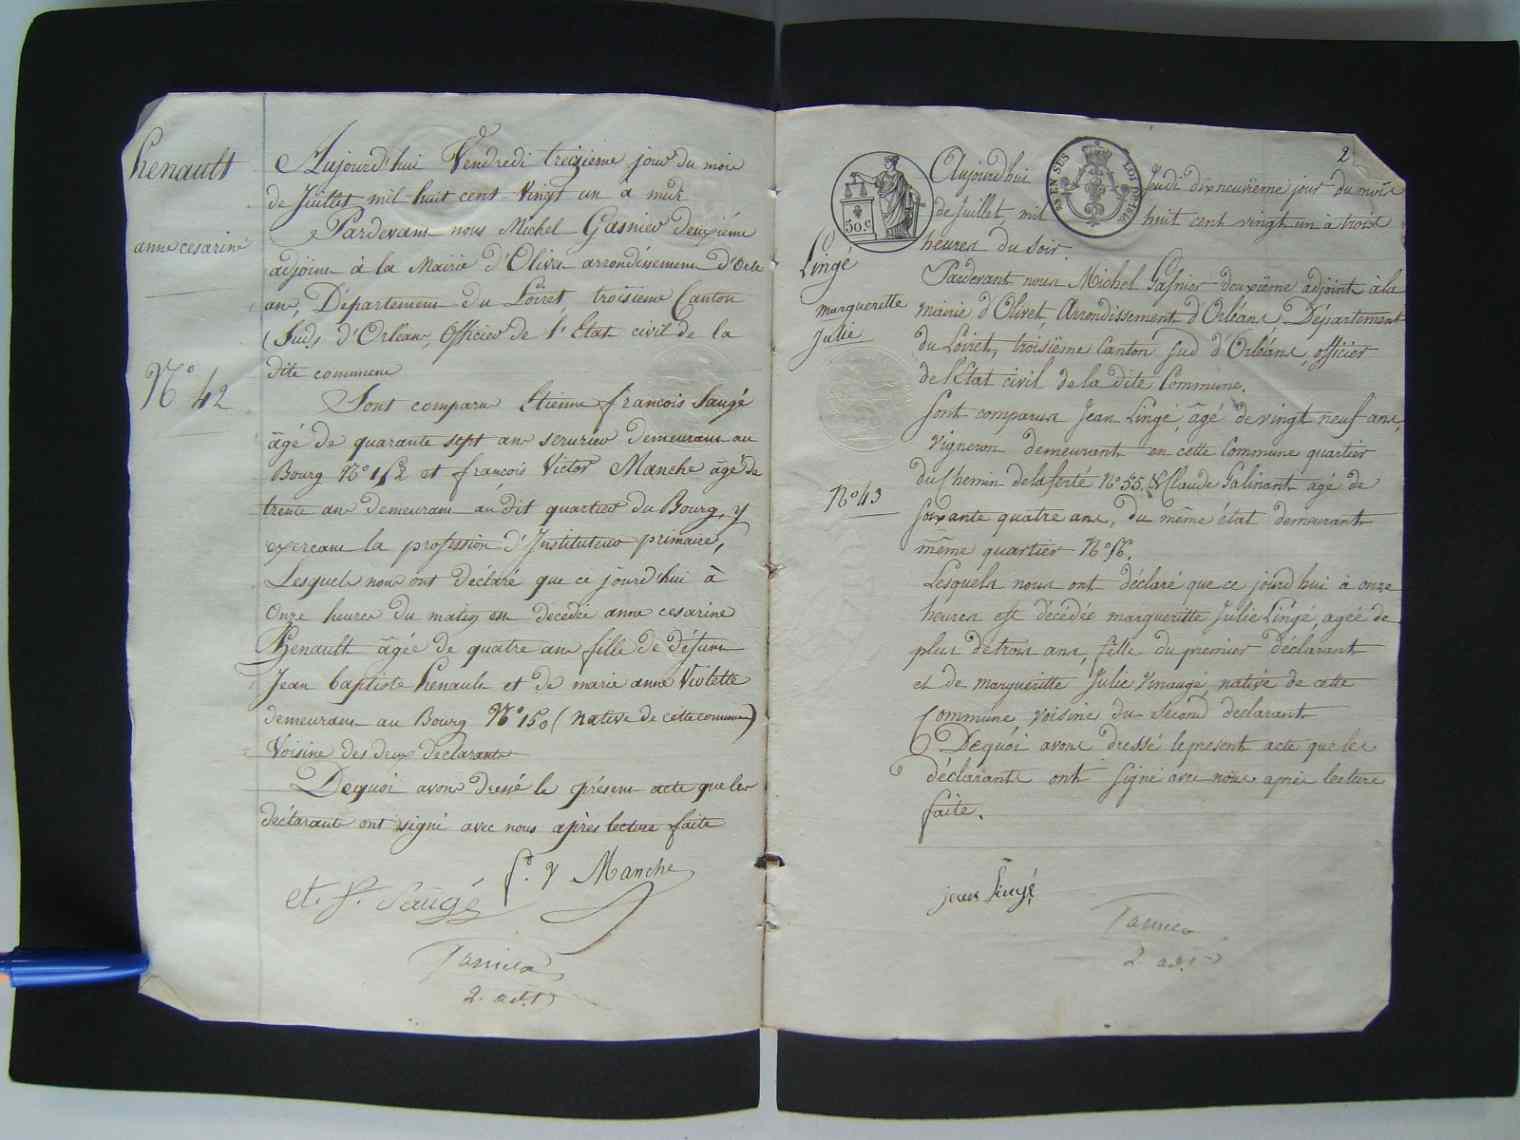 henault
anne cesarine
N° 42
Aujourd'hui Vendredi treizieme jour du mois
de Juillet mil huit cent Vingt un a midi
Pardevant nous Michel Gasnier deuxiéme
adjoint à la Mairie d'Olivet arrondissement d'Orle
ans, Département du Loiret, troisieme Canton
(Sud) d'Orléans, Officier de l'Etat civil de la
dite commune
Sont comparu Etienne françois Saugé
âgé de quarante sept ans serurier demeurant au
Bourg N° 152 et françois Victor Manche âgé de
trente ans demeurant au dit quartier du Bourg, y
exercant la profession d'Instituteur primaire,
Lesquels nous ont déclaré que ce jourd'hui à
onze heures du matin est décédée anne cesarine
henault âgée de quatre ans fille de défunt
Jean baptiste henault et de marie anne Violette
demeurant au Bourg N° 150 (native de cette commune)
Voisine des deux déclarants
Dequoi avons dressé le présent acte que les
déclarants ont signé avec nous après lecture faite
f. V Manche
et. f. Saugé
2. adjt
2
50c
Aujourd'hui Jeudi dixneuvieme jour du mois
de Juillet mil huit cent vingt un à trois
heures du soir.
Lingé
marguerette
Julie
N° 43
Pardevant nous Michel Gasnier deuxième adjoint à la
mairie d'Olivet, Arrondissement d'Orléans, Département
du Loiret, troisieme Canton Sud d'Orléans, officier
de l'Etat civil de la dite Commune.
Sont comparus Jean Lingé, âgé de vingt neuf ans,
vigneron demeurant en cette Commune quartier
du Chemin de la ferté N° 55. & Claude Galinant agé de
soixante quatre ans, du même état demeurant
même quartier N° 56.
Lesquels nous ont déclaré que ce jourd'hui à onze
heures est décédée marguerittte Julie Lingé, agée de
plus de trois ans, fille du premier déclarant
et de margueritte Julie Vinaugé, native de cette
Commune, voisine du Second declarant
Dequoi avons dressé le present acte que les
déclarants ont signé avec nous après lecture
faite.
jean Lingé
2 adjt